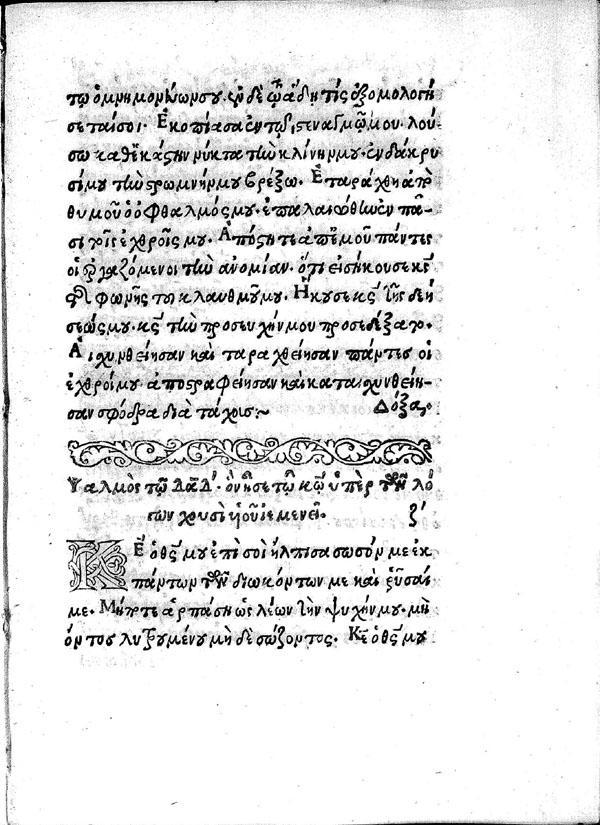 τῳ ὁ μνημονεύων σου. ἐν δὲ τῷ ᾅδῃ τίς ἐξομολογή
σεταί σοι. Ἐκοπίασα ἐν τῷ στεναγμῷ μου. λού
σω καθ' ἑκάστην νύκτα τὴν κλίνην μου. ἐν δάκρυ
σί μου τὴν στρωμνήν μου βρέξω. Ἐταράχθη ἀπὸ
θυμοῦ ὁ ὀφθαλμός μου. ἐπαλαιώθην ἐν πᾶ-
σι τοῖς ἐχθροῖς μου. Ἀπόστητε ἀπ' ἐμοῦ πάντες
οἱ ἐργαζόμενοι τὴν ἀνομίαν. ὅτι εἰσήκουσε κς̄
τῆς φωνῆς τοῦ κλαυθμοῦ μου. Ἤκουσε κς̄ τῆς δεή
σεώς μου. κς̄ τὴν προσευχήν μου προσεδέξατο.
Αἰσχυνθείησαν καὶ ταραχθείησαν πάντες οἱ
ἐχθροί μου. ἀποστραφείησαν καὶ καταισχυνθείη-
σαν σφόδρα διὰ τάχους:~ Δόξα.
Ψαλμὸς τῷ Δαδ̄. ὃν ᾖσε τῷ κω̄ ὑπὲρ τῶν λό
γων χουσὶ υἱοῦ ἰεμενεί. ζ'
Κε̄ ὁ θς̄ μου ἐπὶ σοὶ ἤλπισα σῶσόν με ἐκ
πάντων τῶν διωκόντων με καὶ ῥῦσαί
με. Μήποτε ἁρπάσῃ ὡς λέων τὴν ψυχήν μου. μὴ
ὄντος λυτρουμένου μὴ δὲ σώζοντος. Κε̄ ὁ θς̄ μου